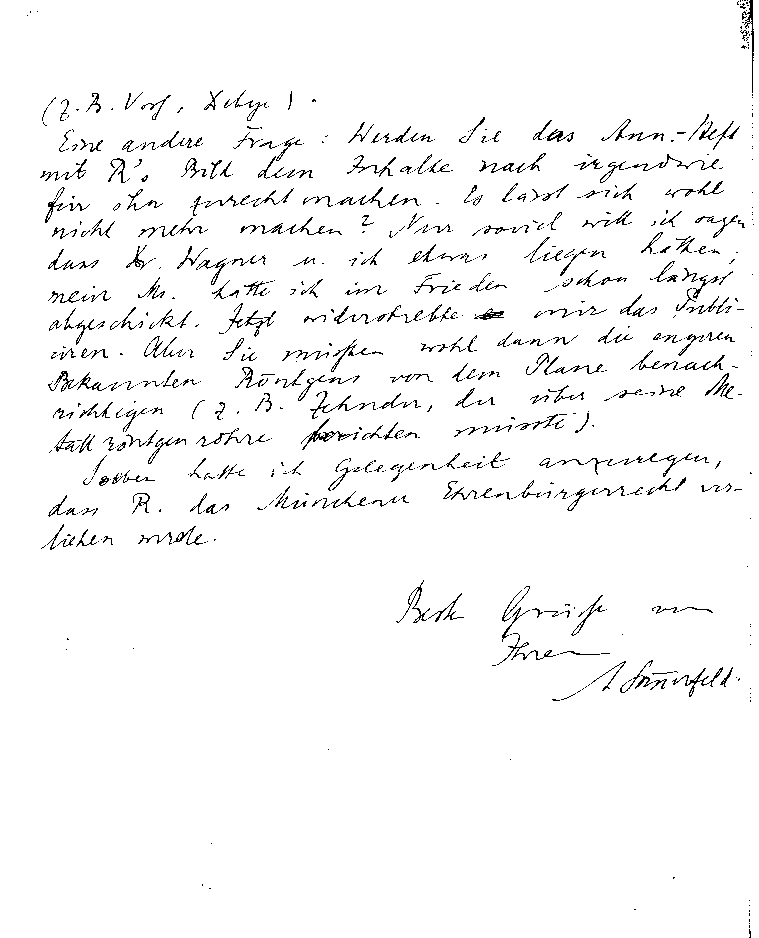 (z. B. Voss, Debye).
Eine andere Frage: Werden Sie das Ann.-Heft
mit R's Bild dem Inhalte nach irgendwie
für ihn zurechtmachen. Es lässt sich wohl
nicht mehr machen? Nur soviel will ich sagen
dass Dr. Wagner u. ich etwas liegen hatten,
mein Ms. hätte ich im Frieden schon längst
abgeschickt. Jetzt widerstrebte mir das Publi-
ciren. Aber Sie müßen wohl dann die engeren
Bekannten Röntgens von dem Plane benach-
richtigen (z. B. Zehnder, der über seine Me-
tallröntgenröhre berichten müsste).
Soeben hatte ich Gelegenheit anzuregen,
dass R. das Münchener Ehrenbürgerrecht ver-
liehen würde.
Beste Grüße von
Ihrem
A Sommerfeld.